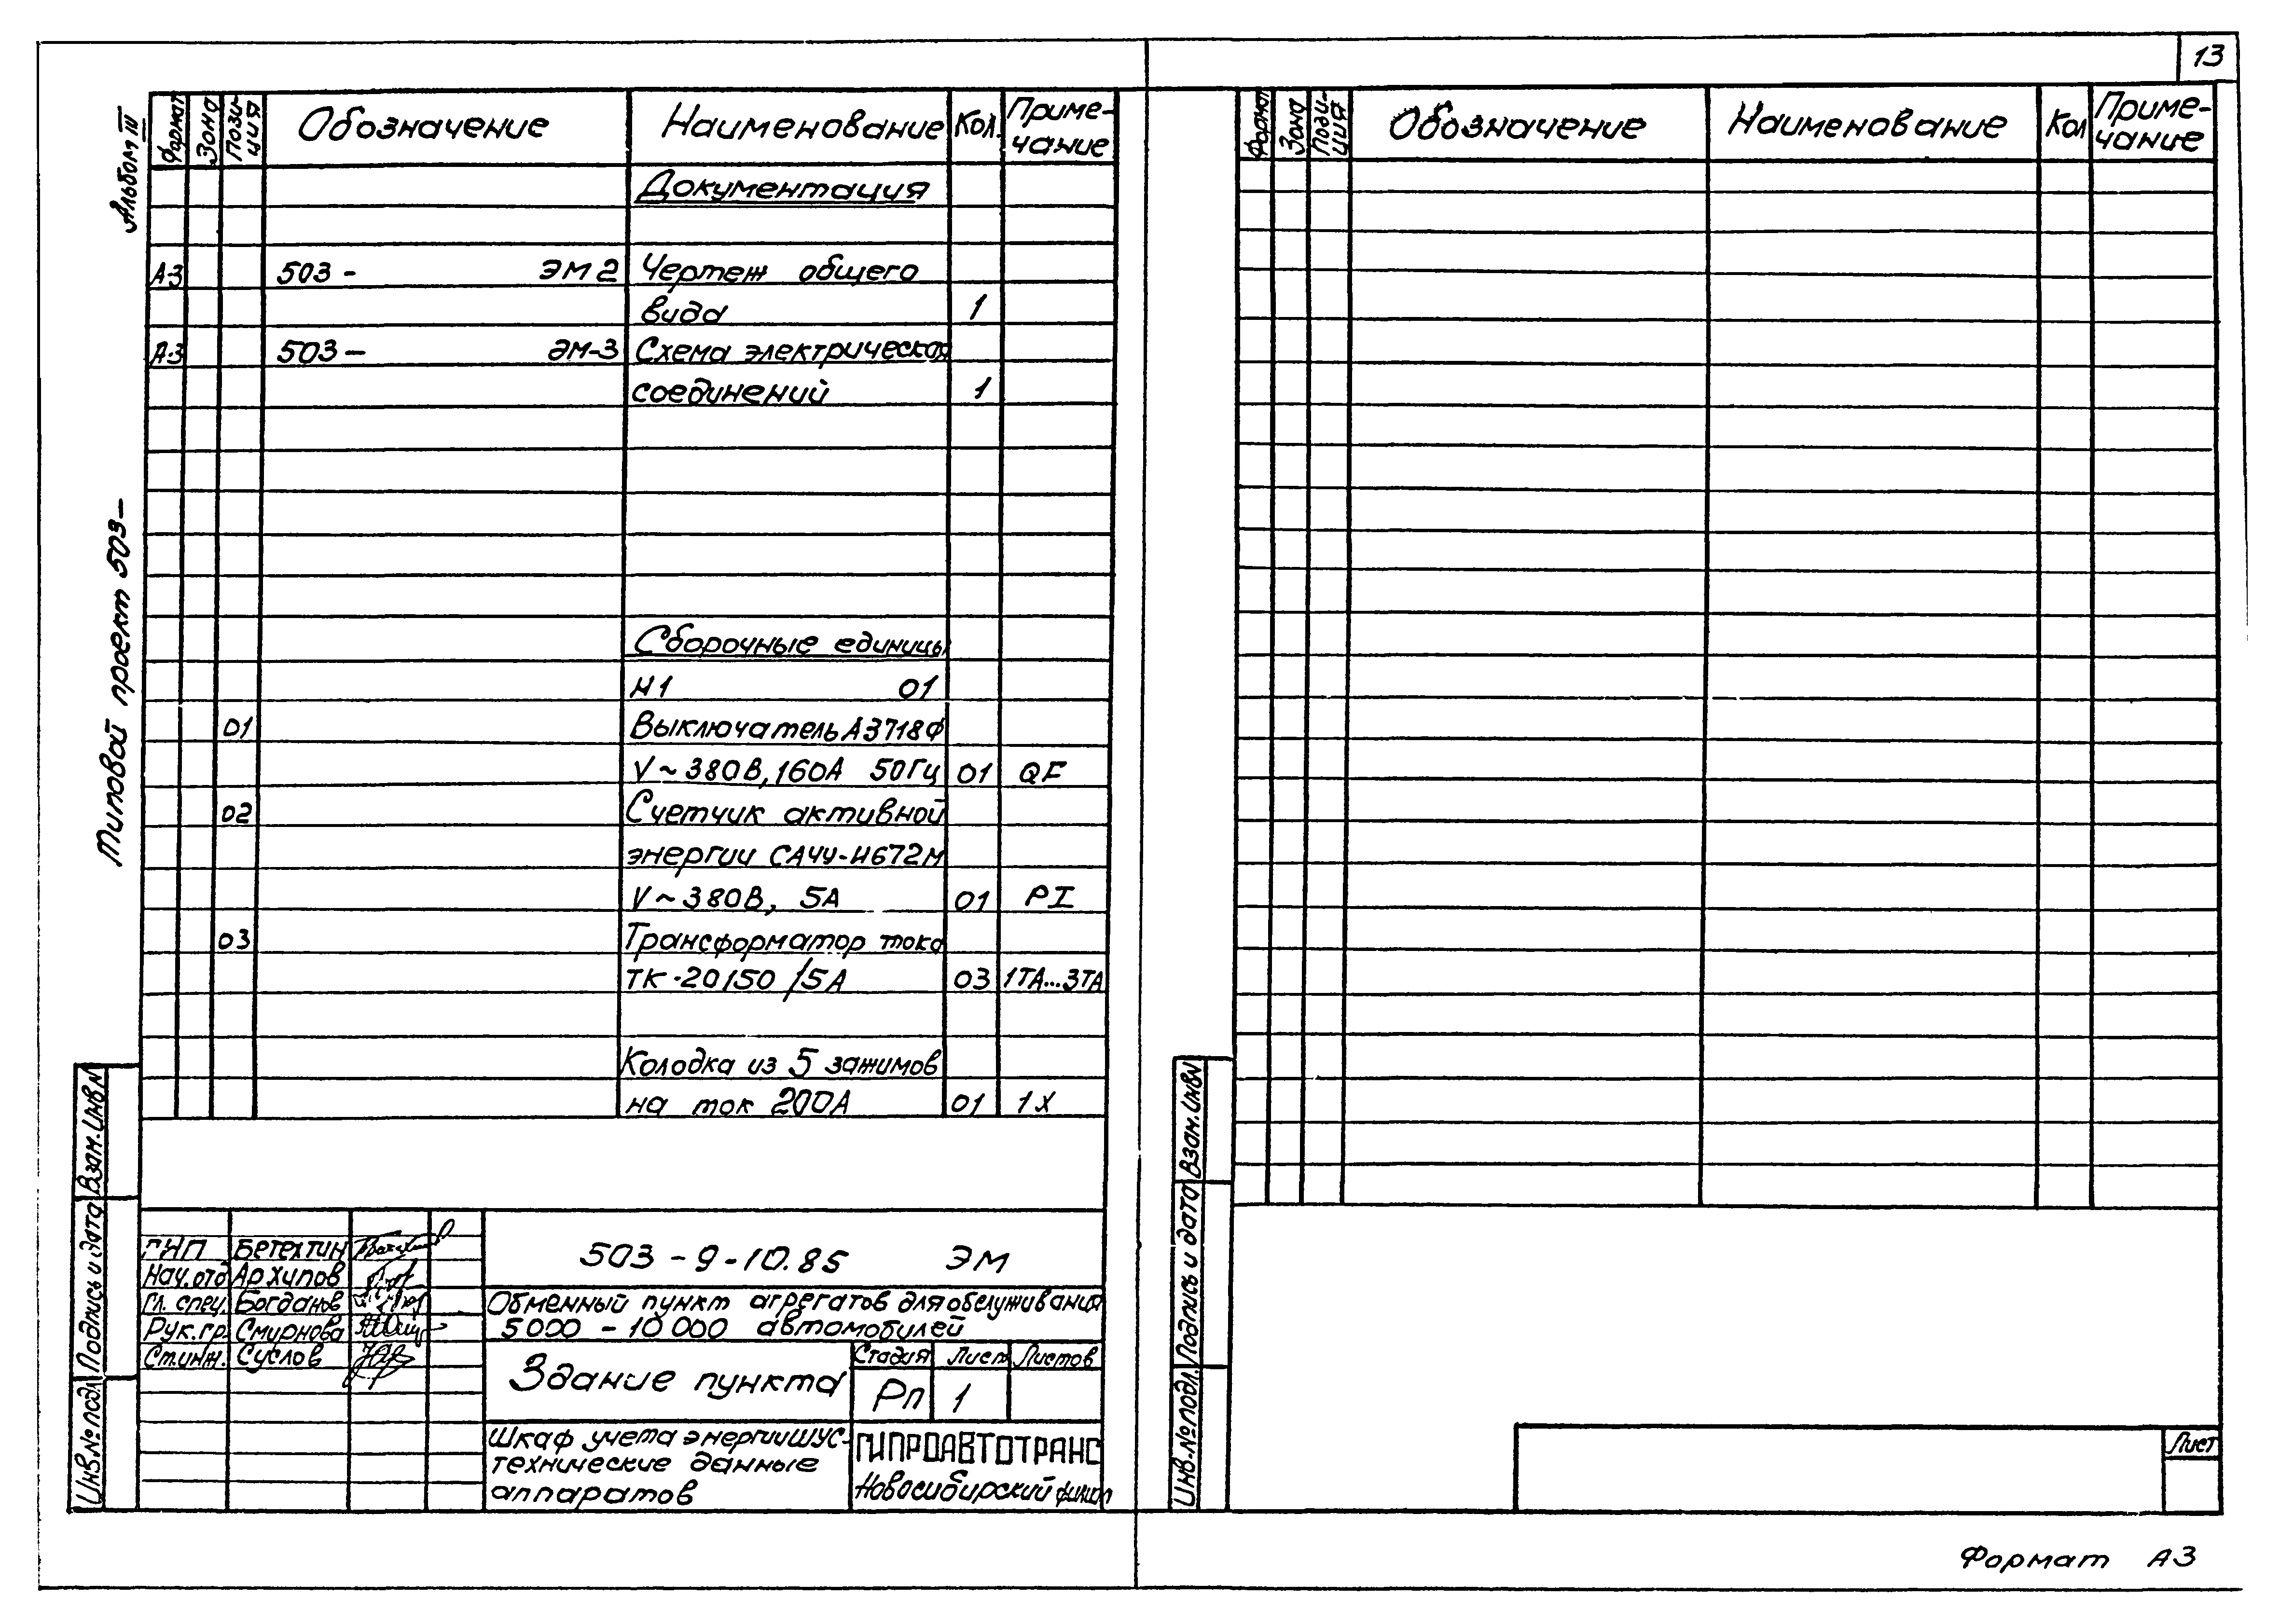 13
Альбом IV
Типовой проект 503-
Формат Зона Пози-ция Обозначение Наименование Кол. Приме-чание
Документация
А3 503 - ЭМ 2 Чертеж общего
вида 1
А3 503 - ЭМ-3 Схема электрическая
соединений 1
Сборочные единицы
И1 01
01 Выключатель А3718Ф
V ~ 380В, 160А 50Гц 01 QF
02 Счетчик активной
энергии СА4У-И672М
V ~ 380В, 5А 01 PI
03 Трансформатор тока
ТК-20 150/5А 03 1ТА...3ТА
Колодка из 5 зажимов
на ток 200А 01 1Х
Взам. инв N
Подпись и дата
Инв. № подл
ГИП Бетехтин
Нач. отд Архипов
Гл. спец. Богданов
Рук. гр. Смирнова
Ст. инж. Суслов
503 - 9 - 10.85 ЭМ
Обменный пункт агрегатов для обслуживания
5000 - 10 000 автомобилей
Здание пункта
Стадия Лист Листов
Рп 1
Шкаф учета энергии ШУС-
технические данные
аппаратов
ГИПРОАВТОТРАНС
Новосибирский филиал
Формат Зона Пози-ция Обозначение Наименование Кол Приме-чание
Взам. инв N
Подпись и дата
Инв. № подл.
Лист
Формат А3